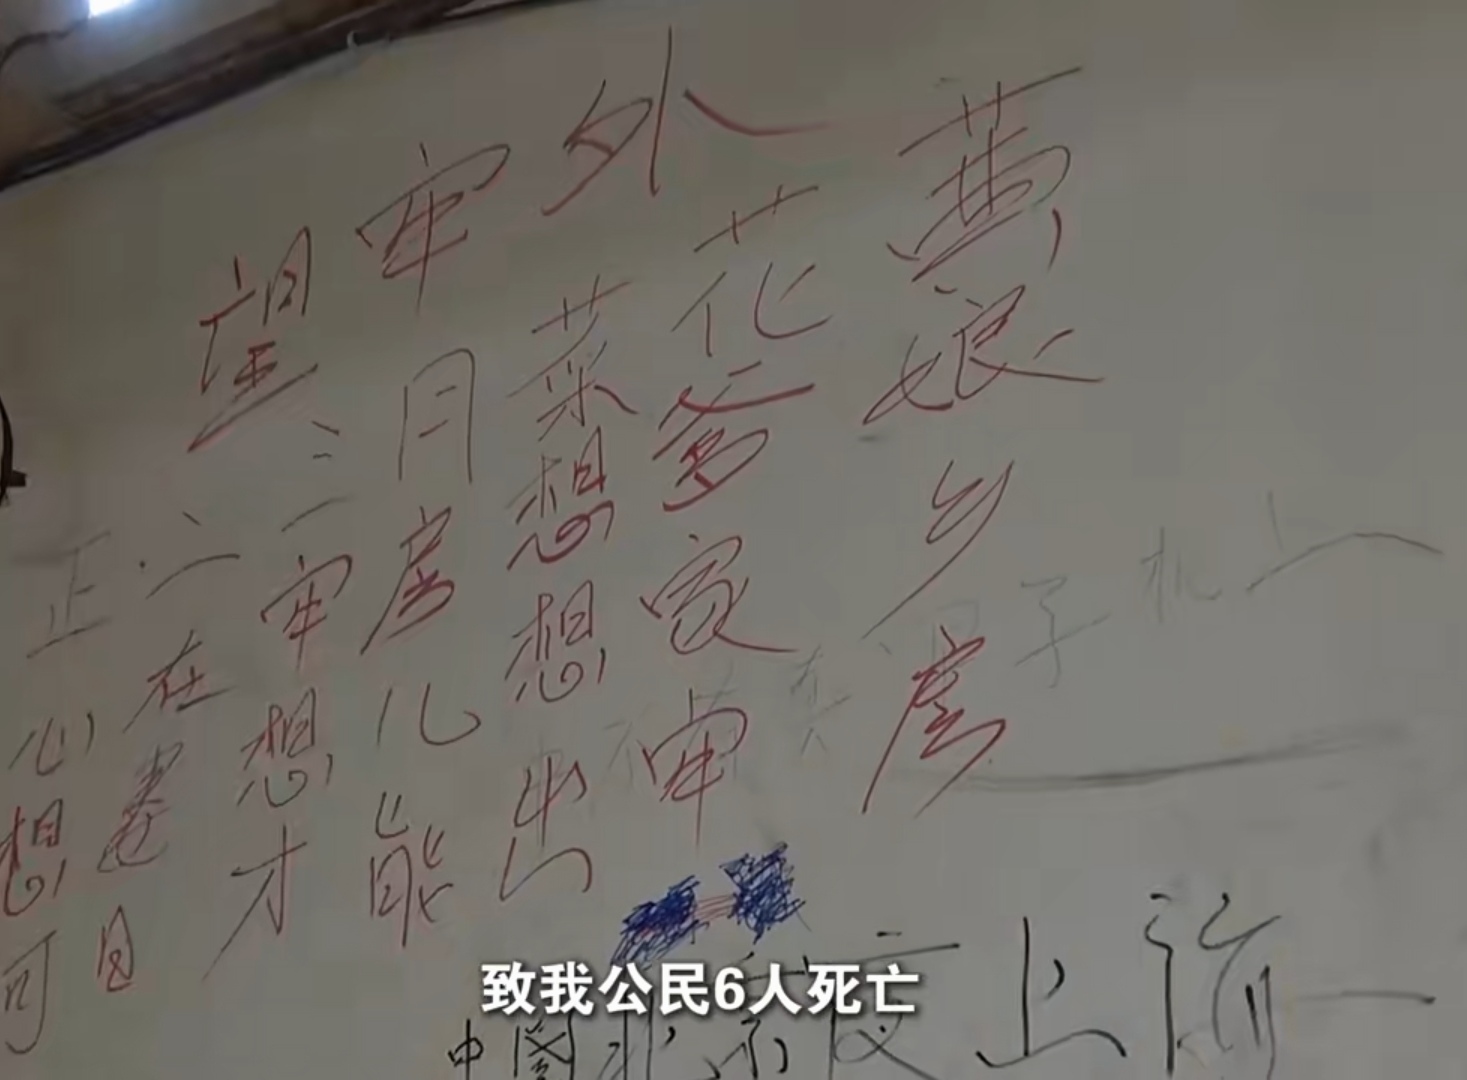 望牢外
正二三月菜花黄
心在牢房想爹娘
想妻想儿想家乡
可日才能出牢房
致我公民6人死亡
中國北京